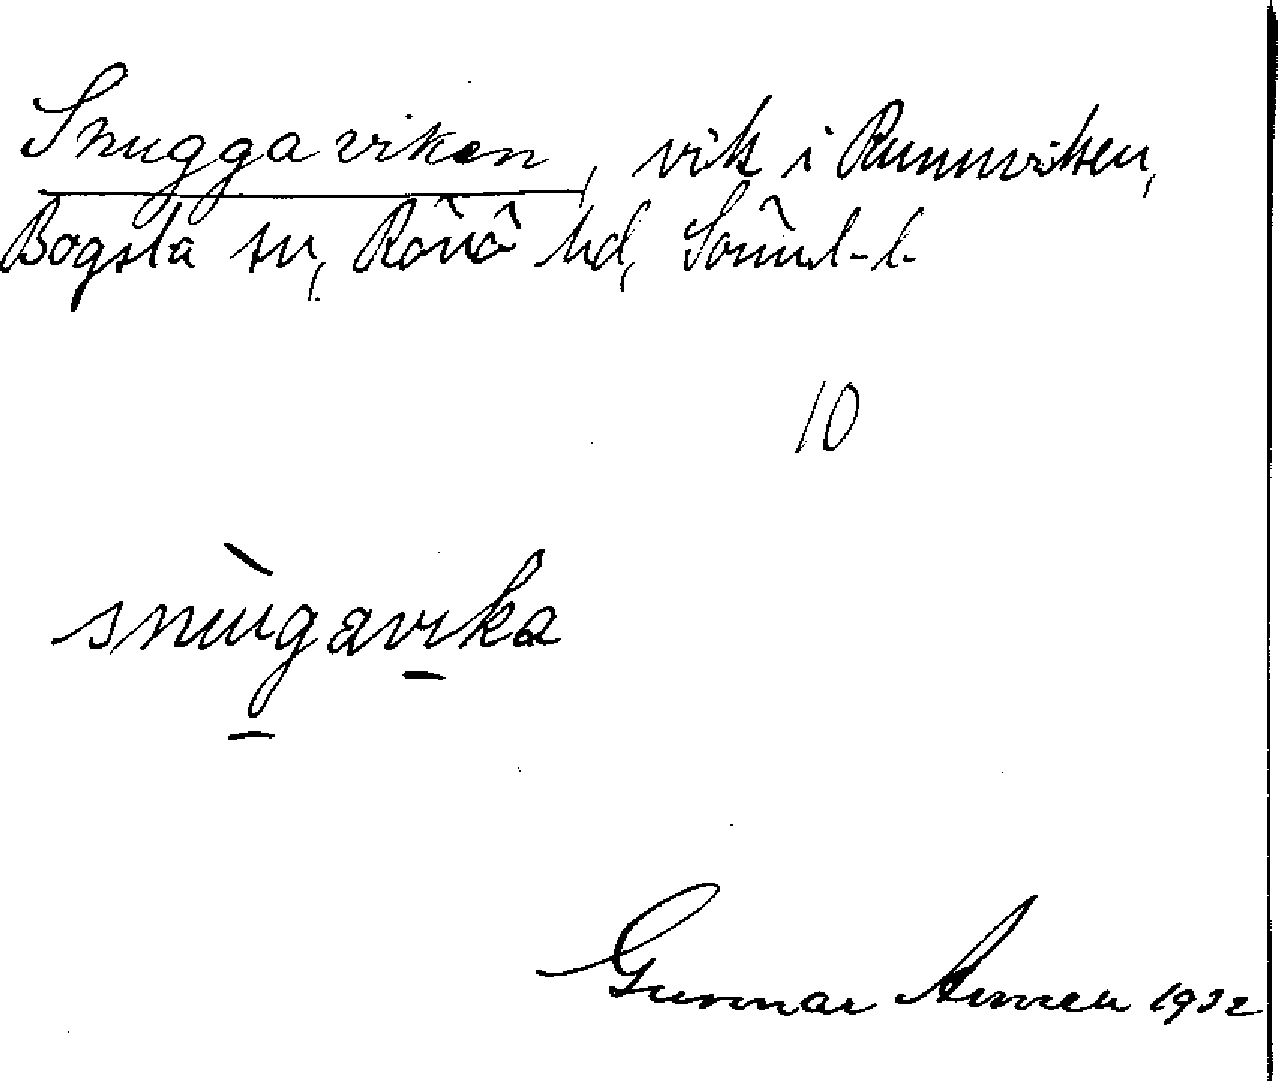 Snuggaviken, vik i Runnviken,
Bogsta sn, Rönö hd, Sörml. l.
10
snùgavika
Gunnar 1932